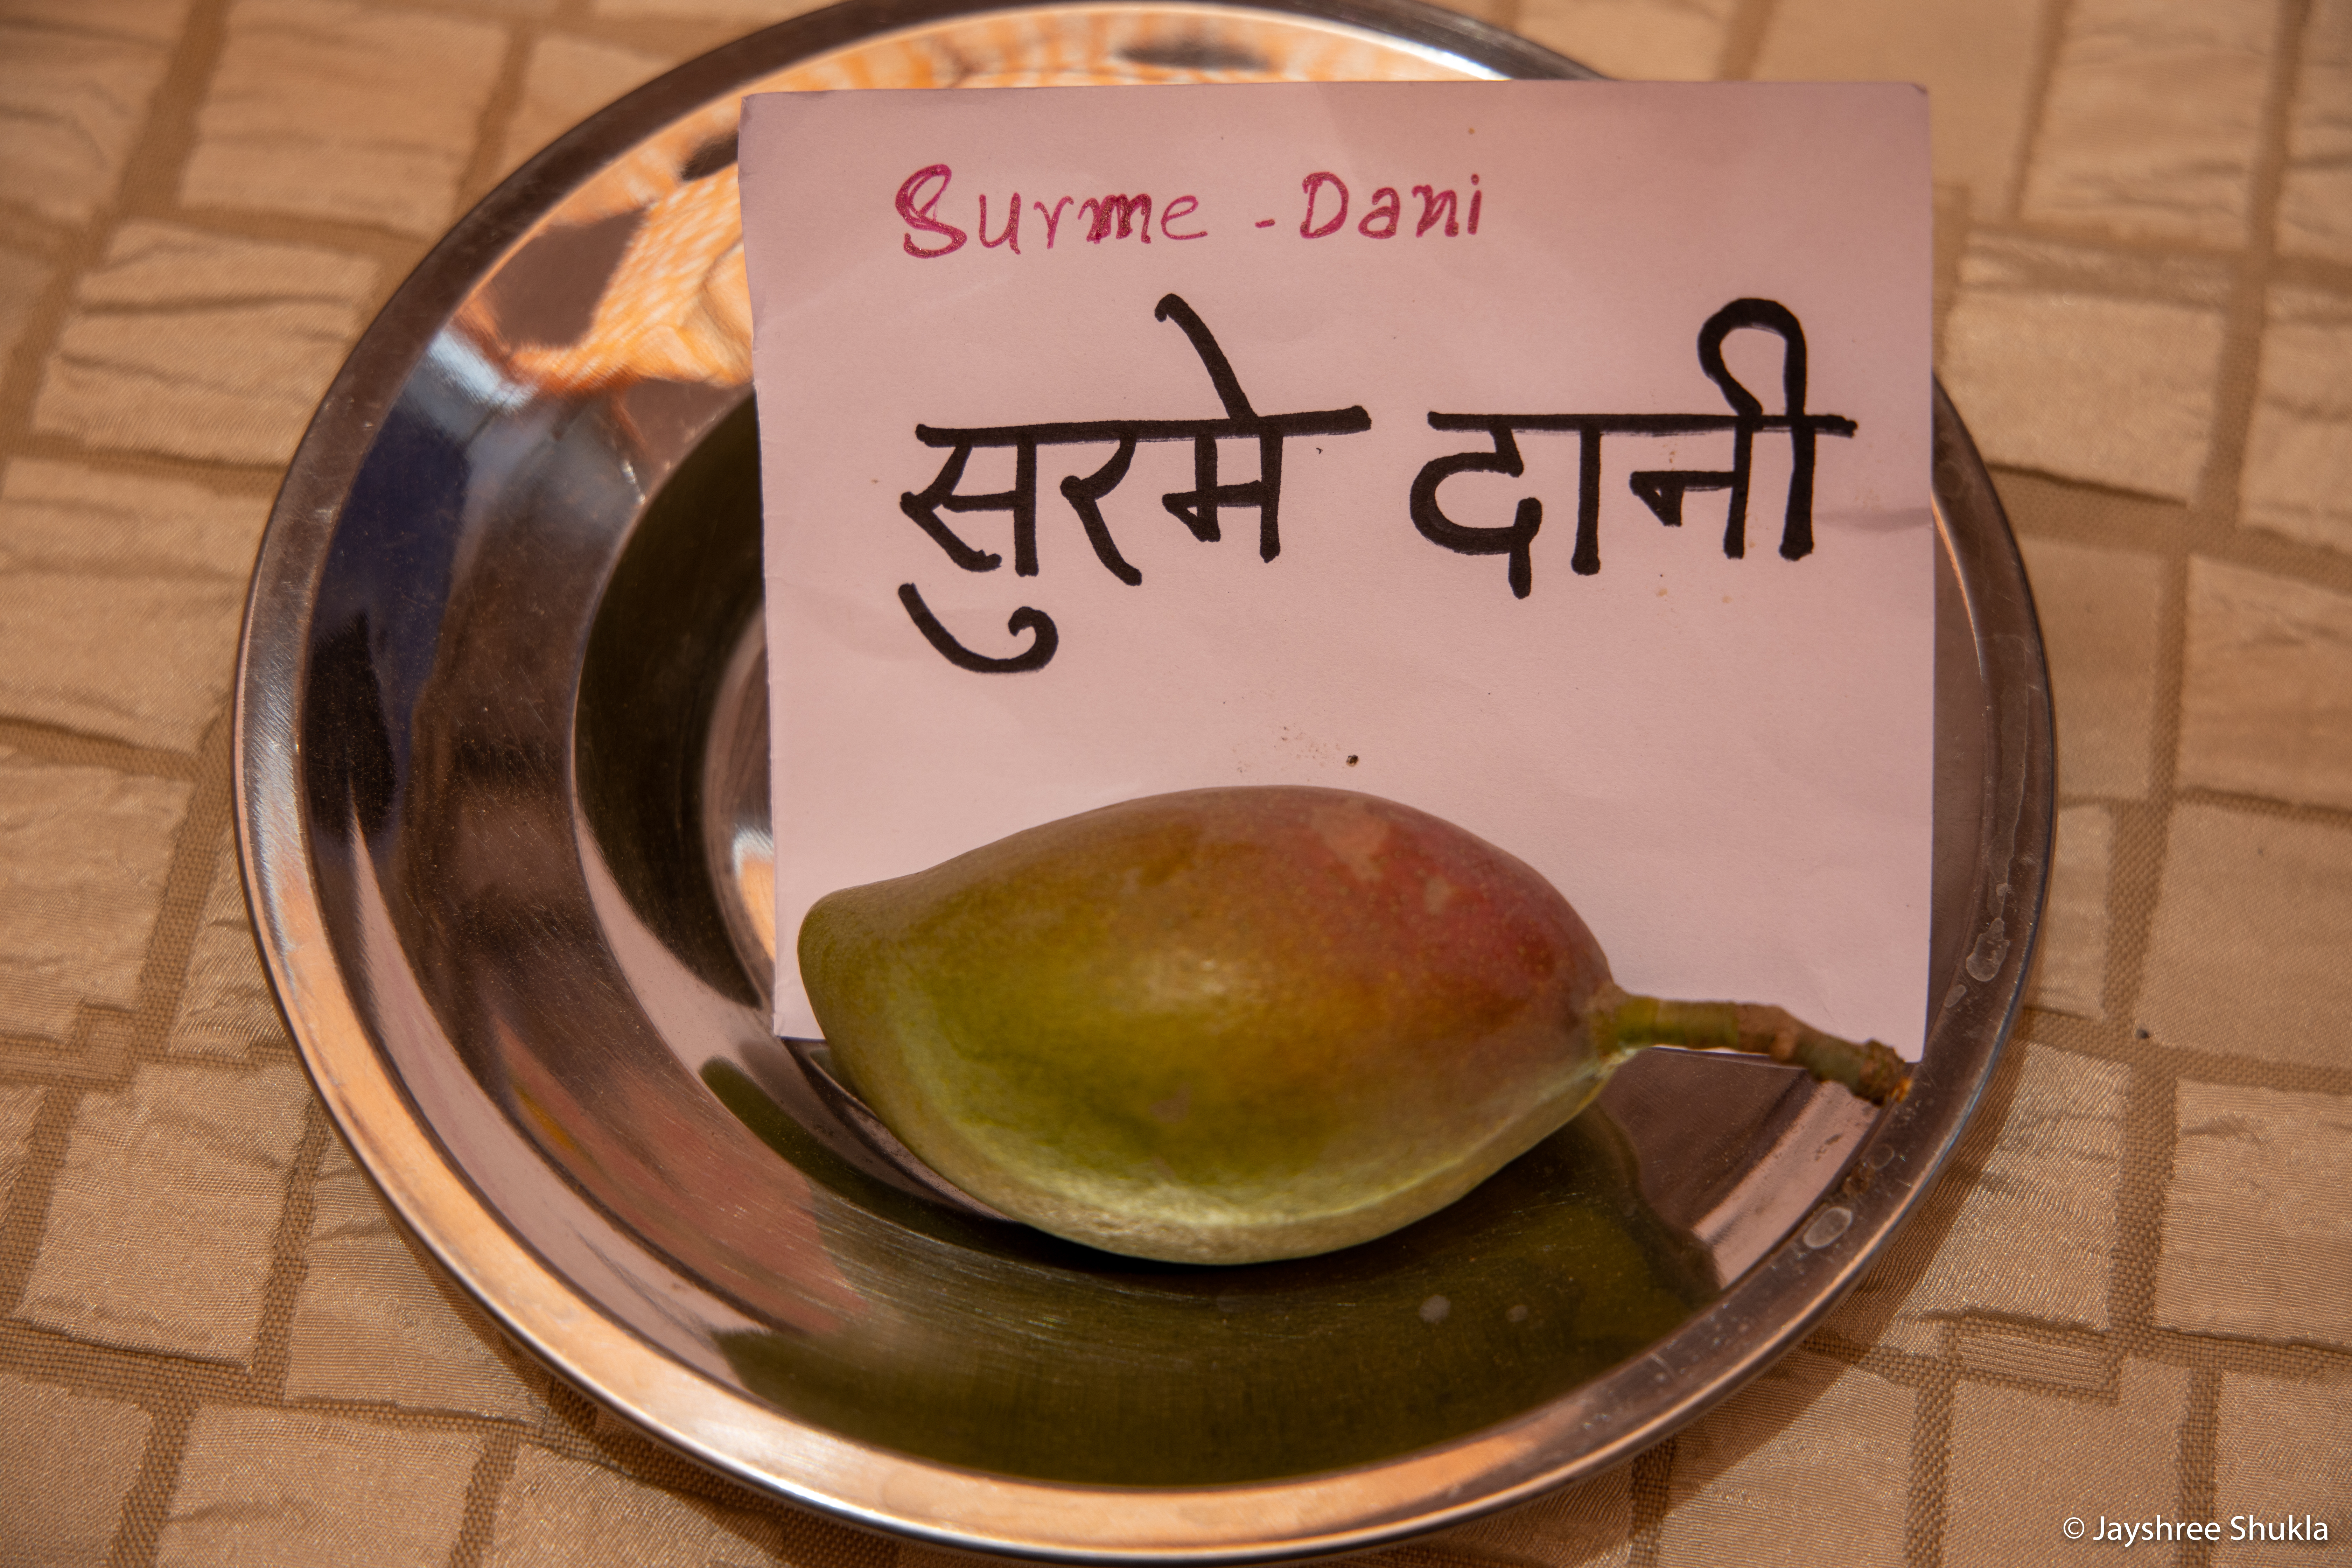 Surme - Dani
सुरमे दानी
© Jayshree Shukla